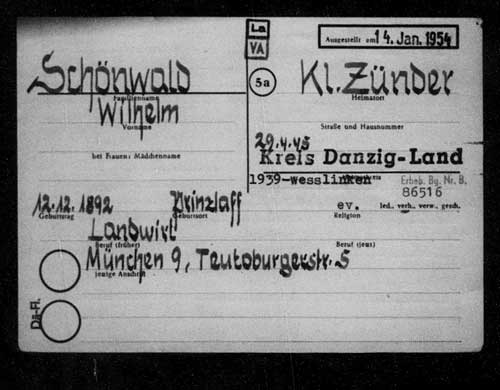 La
VA
Ausgestellt am 14. Jan. 1954
Schönwald
Familienname
5a
Kl. Zünder
Heimatort
Wilhelm
Vorname
Straße und Hausnummer
bei Frauen: Mädchenname
29.4.45
Kreis Danzig-Land
1939-wesslinken
Erheb. Bg. Nr. B.
86516
12.12.1892
Geburtstag
Prinzlaff
Geburtsort
ev.
Religion
led., verh., verw., gesch.
Landwirt
Beruf (früher)
Beruf (jetzt)
München 9, Teutoburgerstr. 5
jetzige Anschrift
Da-Fl.